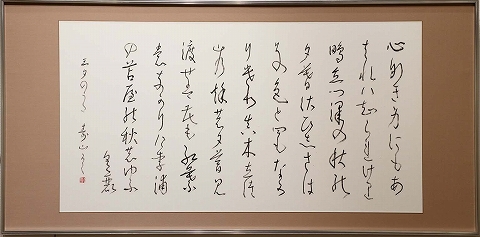 心那き身にもあ
はれハ知られけり
鴫立つ澤の秋の
夕暮 さひしさは
その色としもなか
りけり真木立つ
山の秋の夕暮 見
渡せ者花も紅葉
もなかりけり浦
の苫屋の秋のゆふ
具麗
三夕のうた 寿山